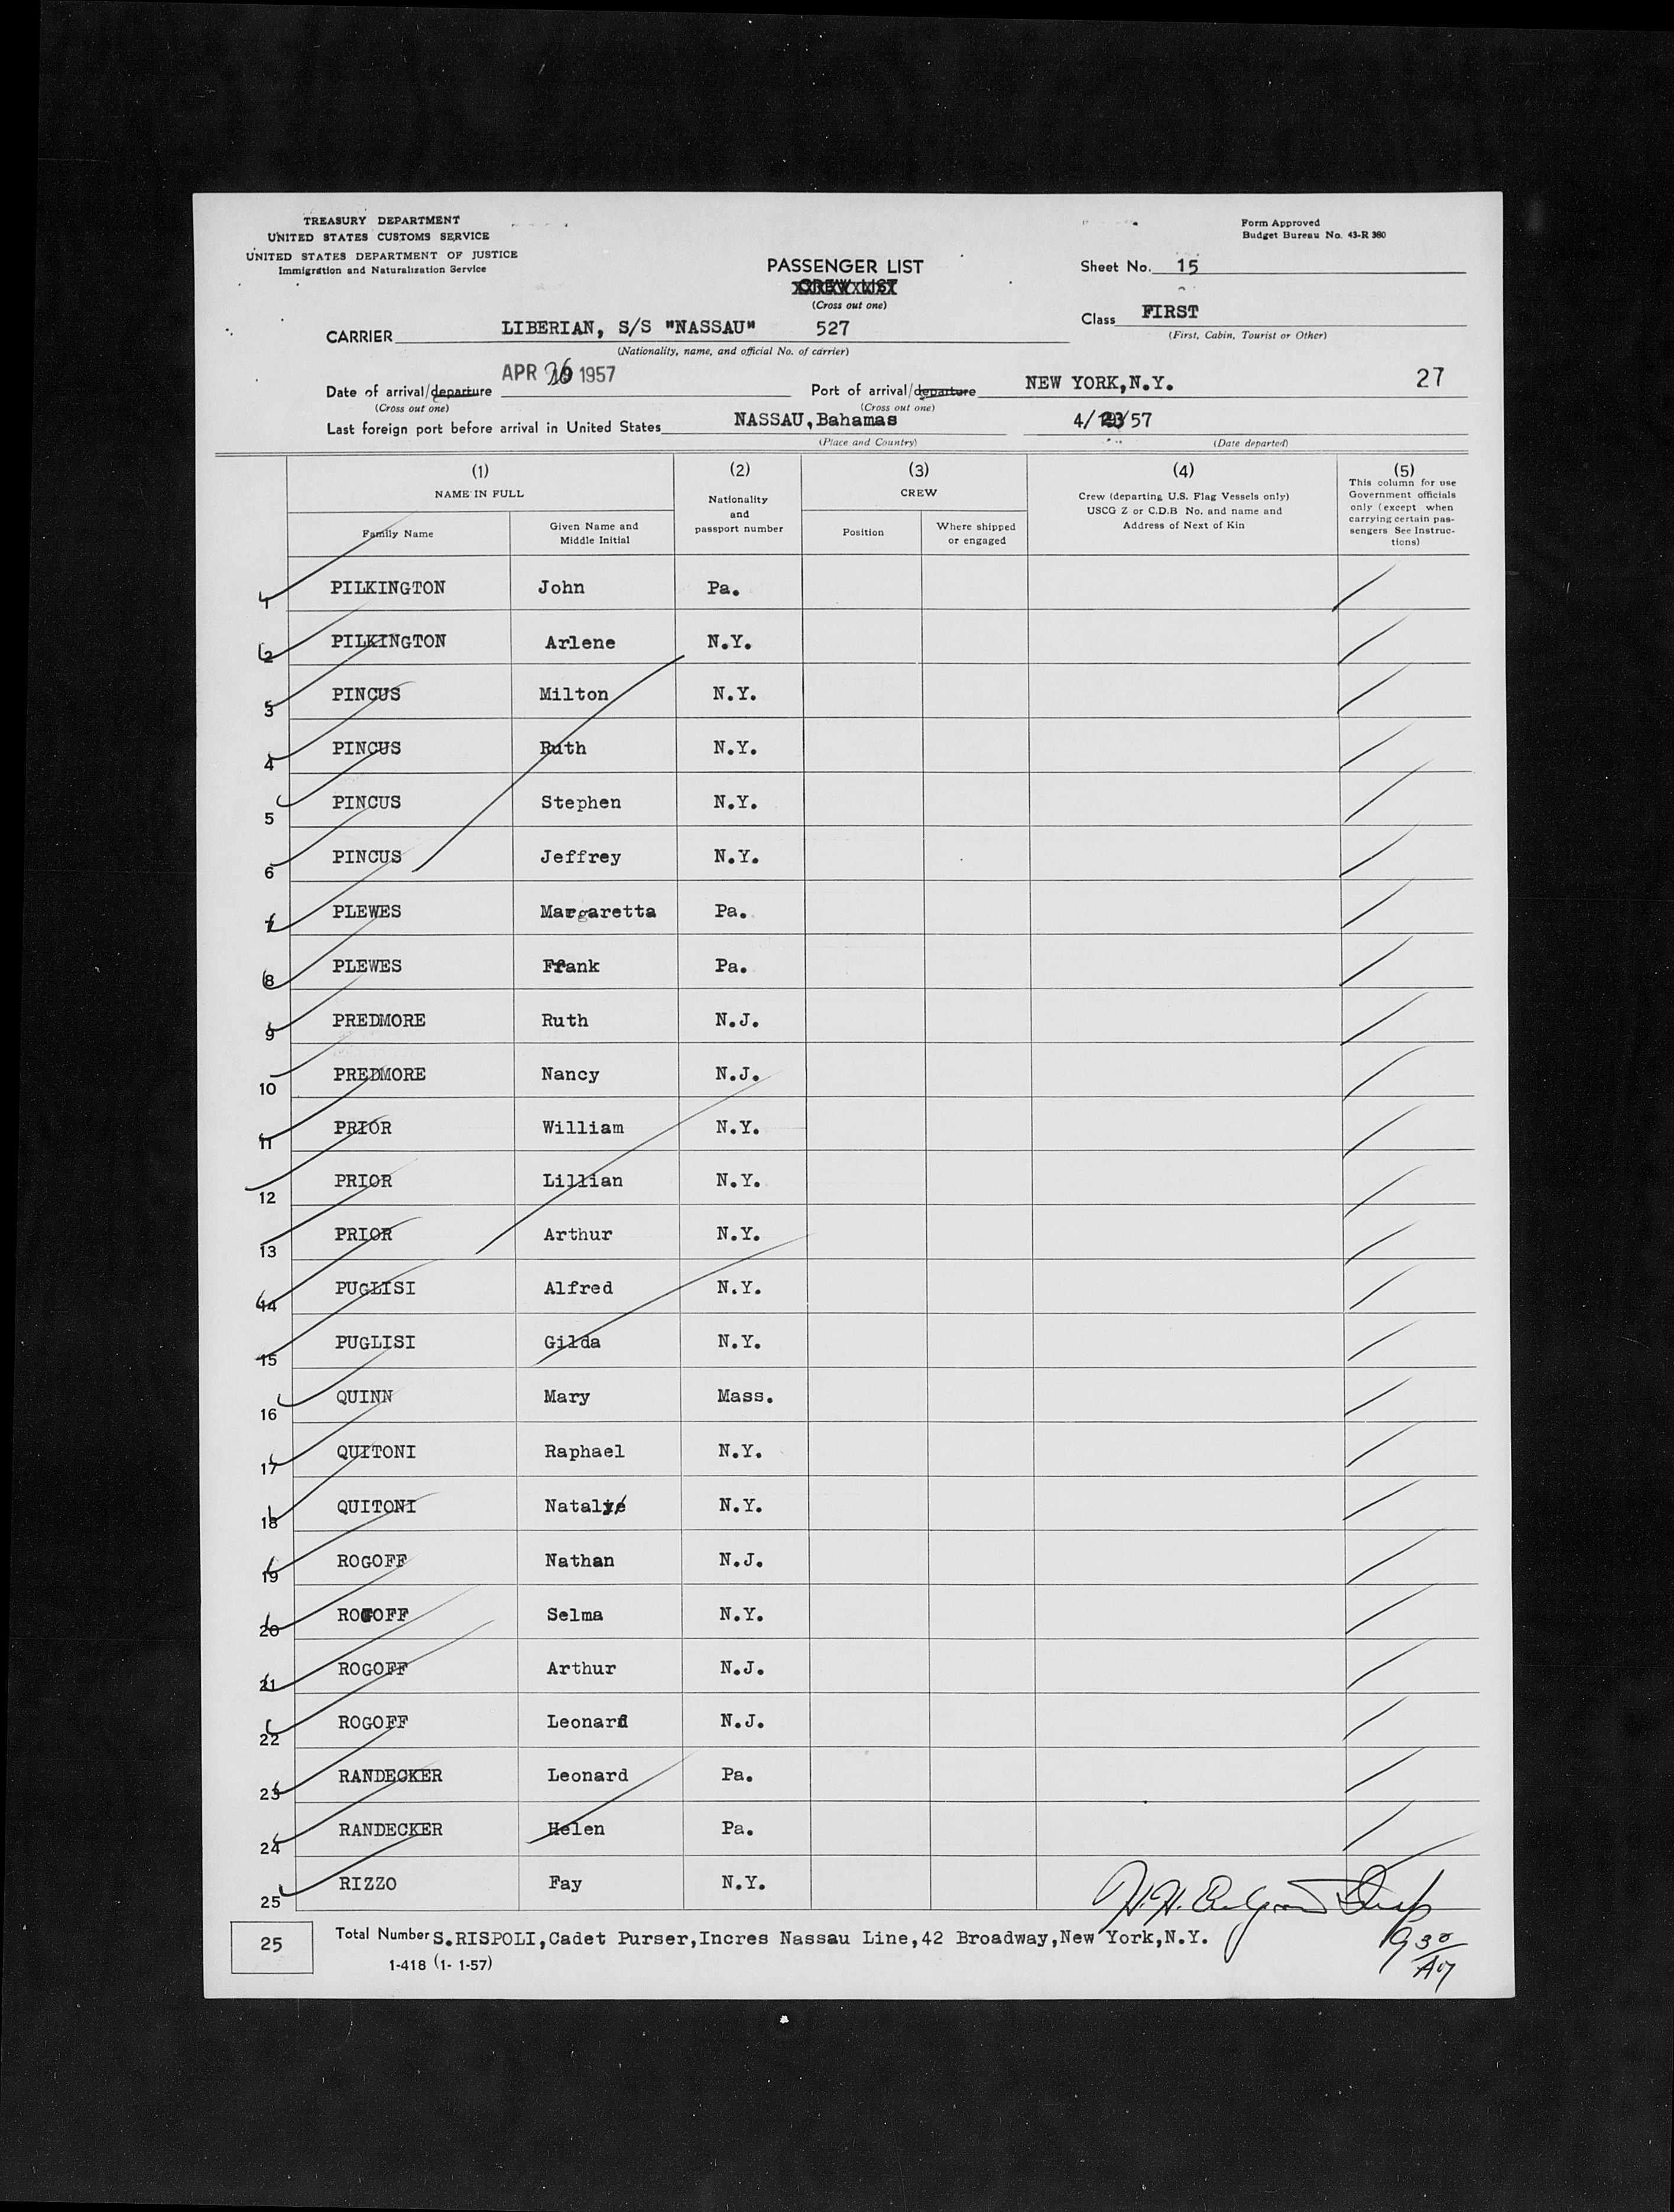 TREASURY DEPARTMENT
UNITED STATES CUSTOMS SERVICE
UNITED STATES DEPARTMENT OF JUSTICE
Immigration and Naturalization Service
Form Approved
Budget Bureau No. 43-R 380
PASSENGER LIST
CREW LIST
(Cross out one)
Sheet No. 15
Class FIRST
(First, Cabin, Tourist or Other)
CARRIER LIBERIAN, S/S "NASSAU" 527
(Nationality, name, and official No. of carrier)
Date of arrival/departure APR 26 1957
(Cross out one)
Port of arrival/departure NEW YORK,N.Y. 27
(Cross out one)
Last foreign port before arrival in United States NASSAU,Bahamas 4/23/57
(Place and Country) (Date departed)
(1) (2) (3) (4) (5)
NAME IN FULL
Family Name
Given Name and Middle Initial
Nationality and passport number
CREW
Position
Where shipped or engaged
Crew (departing U.S. Flag Vessels only)
USCG Z or C.D.B No. and name and
Address of Next of Kin
This column for use
Government officials
only (except when
carrying certain pas-
sengers See Instruc-
tions)
1 PILKINGTON John Pa.
2 PILKINGTON Arlene N.Y.
3 PINCUS Milton N.Y.
4 PINCUS Ruth N.Y.
5 PINCUS Stephen N.Y.
6 PINCUS Jeffrey N.Y.
7 PLEWES Margaretta Pa.
8 PLEWES Frank Pa.
9 PREDMORE Ruth N.J.
10 PREDMORE Nancy N.J.
11 PRIOR William N.Y.
12 PRIOR Lillian N.Y.
13 PRIOR Arthur N.Y.
14 PUGLISI Alfred N.Y.
15 PUGLISI Gilda N.Y.
16 QUINN Mary Mass.
17 QUITONI Raphael N.Y.
18 QUITONI Nataly N.Y.
19 ROGOFF Nathan N.J.
20 ROGOFF Selma N.Y.
21 ROGOFF Arthur N.J.
22 ROGOFF Leonard N.J.
23 RANDECKER Leonard Pa.
24 RANDECKER Helen Pa.
25 RIZZO Fay N.Y.
25 Total Number S.RISPOLI,Cadet Purser,Incres Nassau Line,42 Broadway,New York,N.Y.
1-418 (1- 1-57)
9 30 AM